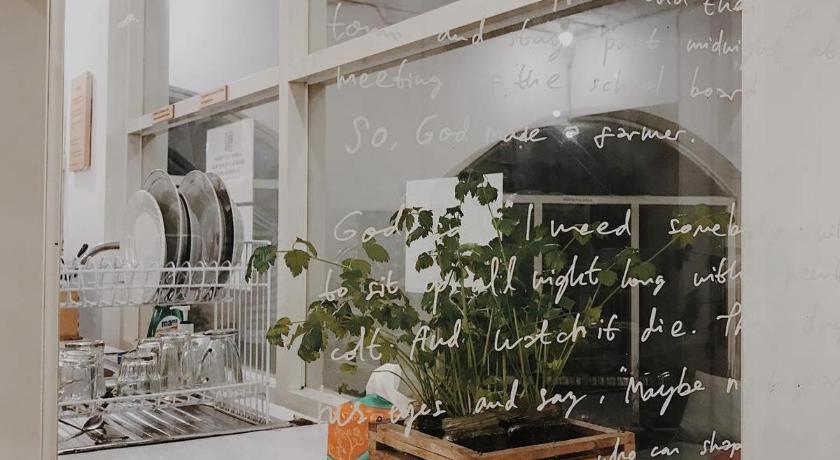 town and stay past midnight at
meeting of the school board
So, God made a farmer.
God "I need someb
to sit up all night long with
colt. And watch it die. Th
his eyes and say, "Maybe n
who can shap